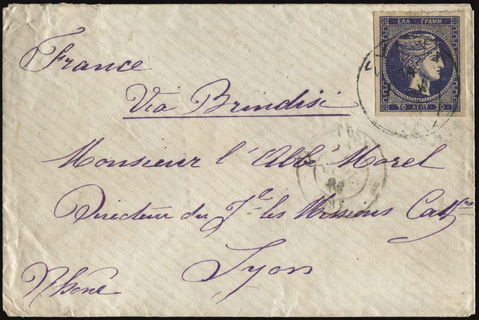 ΕΛΛ ΓΡΑΜΜ
20 ΛΕΠΤ 20
France
Via Brindisi
Monsieur l'Abbé Morel
Directeur du Jal les Missions Cath
Lyon
Rhône